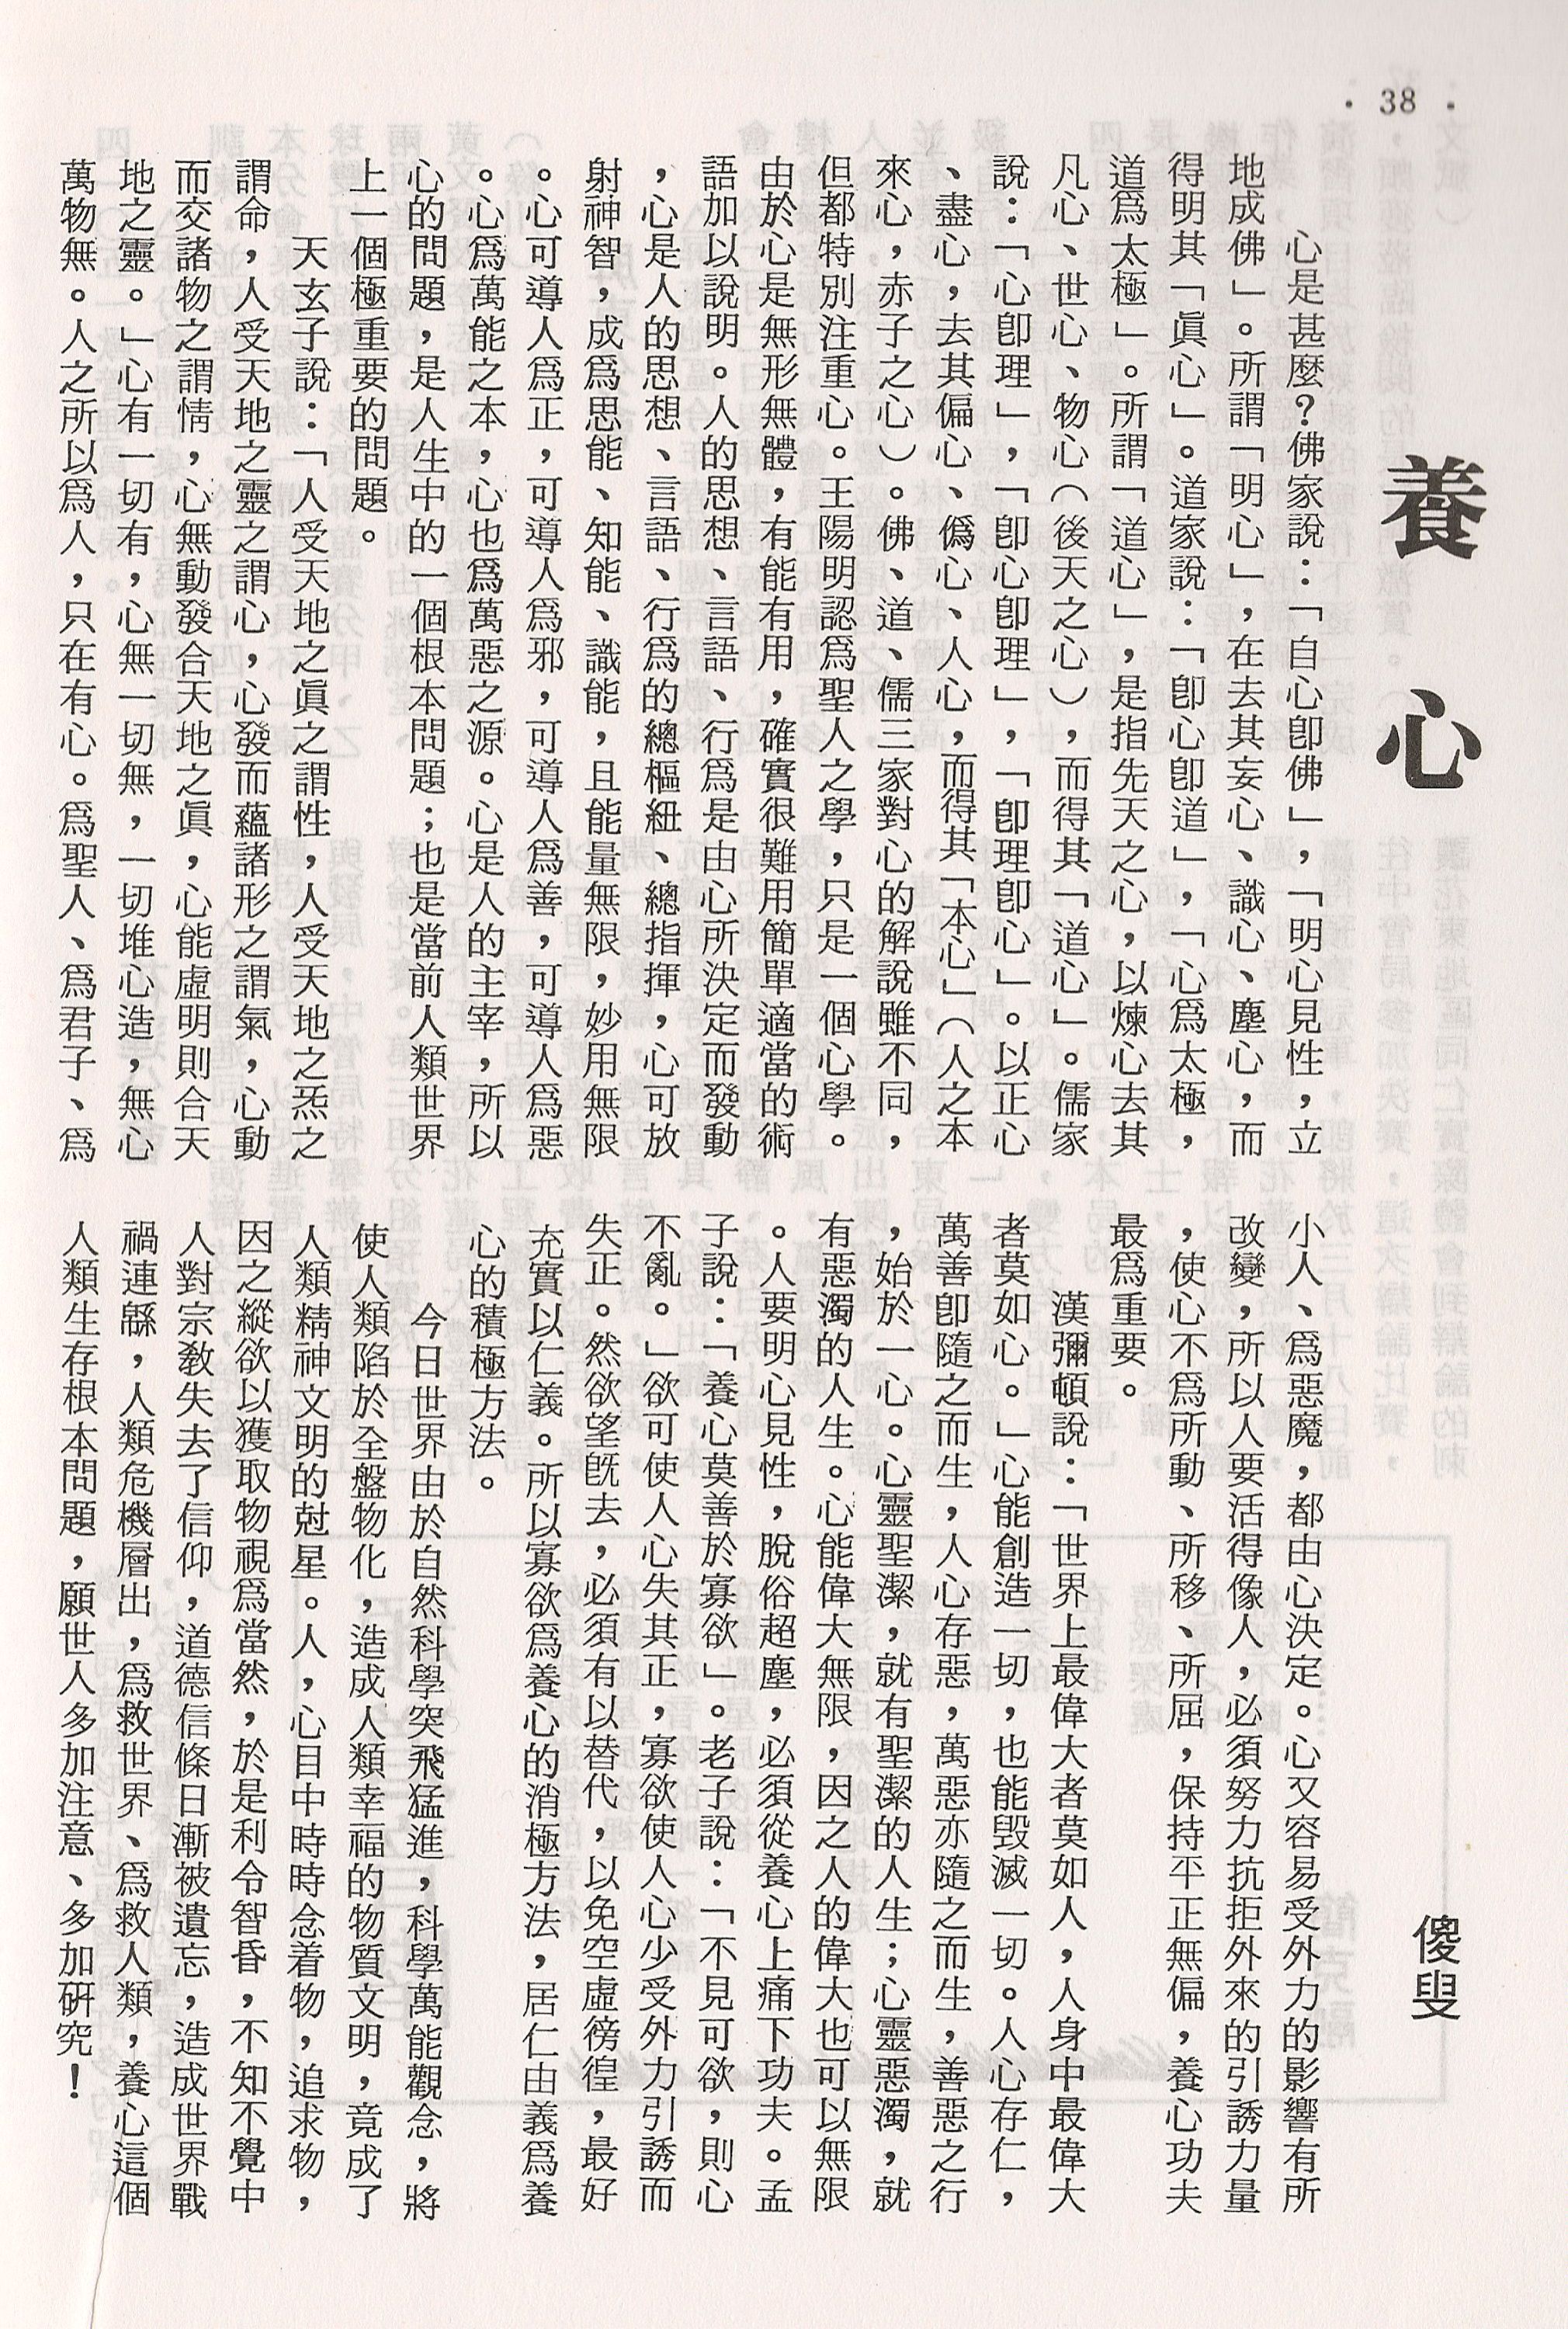 · 38 ·
養心
傻叟
心是甚麼？佛家說：「自心卽佛」，「明心見性，立
地成佛」。所謂「明心」，在去其妄心、識心、塵心，而
得明其「眞心」。道家說：「卽心卽道」，「心爲太極，
道爲太極」。所謂「道心」，是指先天之心，以煉心去其
凡心、世心、物心（後天之心），而得其「道心」。儒家
說：「心卽理」，「卽心卽理」，「卽理卽心」。以正心
、盡心，去其偏心、僞心、人心，而得其「本心」（人之本
來心，赤子之心）。佛、道、儒三家對心的解說雖不同，
但都特別注重心。王陽明認爲聖人之學，只是一個心學。
由於心是無形無體，有能有用，確實很難用簡單適當的術
語加以說明。人的思想、言語、行爲是由心所決定而發動
，心是人的思想、言語、行爲的總樞紐、總指揮，心可放
射神智，成爲思能、知能、識能，且能量無限，妙用無限
。心可導人爲正，可導人爲邪，可導人爲善，可導人爲惡
。心爲萬能之本，心也爲萬惡之源。心是人的主宰，所以
心的問題，是人生中的一個根本問題；也是當前人類世界
上一個極重要的問題。
天玄子說：「人受天地之眞之謂性，人受天地之炁之
謂命，人受天地之靈之謂心，心發而蘊諸形之謂氣，心動
而交諸物之謂情，心無動發合天地之眞，心能虛明則合天
地之靈。」心有一切有，心無一切無，一切堆心造，無心
萬物無。人之所以爲人，只在有心。爲聖人、爲君子、爲
小人、爲惡魔，都由心決定。心又容易受外力的影響有所
改變，所以人要活得像人，必須努力抗拒外來的引誘力量
，使心不爲所動、所移、所屈，保持平正無偏，養心功夫
最爲重要。
漢彌頓說：「世界上最偉大者莫如人，人身中最偉大
者莫如心。」心能創造一切，也能毀滅一切。人心存仁，
萬善卽隨之而生，人心存惡，萬惡亦隨之而生，善惡之行
，始於一心。心靈聖潔，就有聖潔的人生；心靈惡濁，就
有惡濁的人生。心能偉大無限，因之人的偉大也可以無限
。人要明心見性，脫俗超塵，必須從養心上痛下功夫。孟
子說：「養心莫善於寡欲」。老子說：「不見可欲，則心
不亂。」欲可使人心失其正，寡欲使人心少受外力引誘而
失正。然欲望旣去，必須有以替代，以免空虛徬徨，最好
充實以仁義。所以寡欲爲養心的消極方法，居仁由義爲養
心的積極方法。
今日世界由於自然科學突飛猛進，科學萬能觀念，將
使人類陷於全盤物化，造成人類幸福的物質文明，竟成了
人類精神文明的尅星。人，心目中時時念着物，追求物，
因之縱欲以獲取物視爲當然，於是利令智昏，不知不覺中
人對宗敎失去了信仰，道德信條日漸被遺忘，造成世界戰
禍連緜，人類危機層出，爲救世界、爲救人類，養心這個
人類生存根本問題，願世人多加注意、多加硏究！